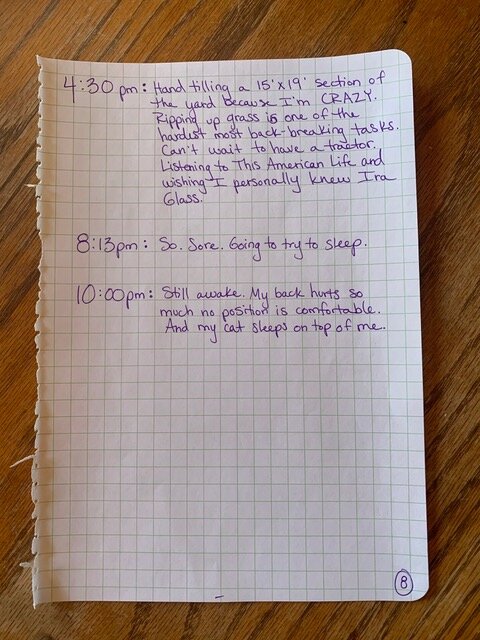 4:30 pm: Hand tilling a 15'x19' section of
the yard because I'm CRAZY.
Ripping up grass is one of the
hardest most back-breaking tasks.
Can't wait to have a tractor.
Listening to This American Life and
wishing I personally knew Ira
Glass.
8:13pm: So. Sore. Going to try to sleep.
10:00pm: Still awake. My back hurts so
much no position is comfortable.
And my cat sleeps on top of me.
8